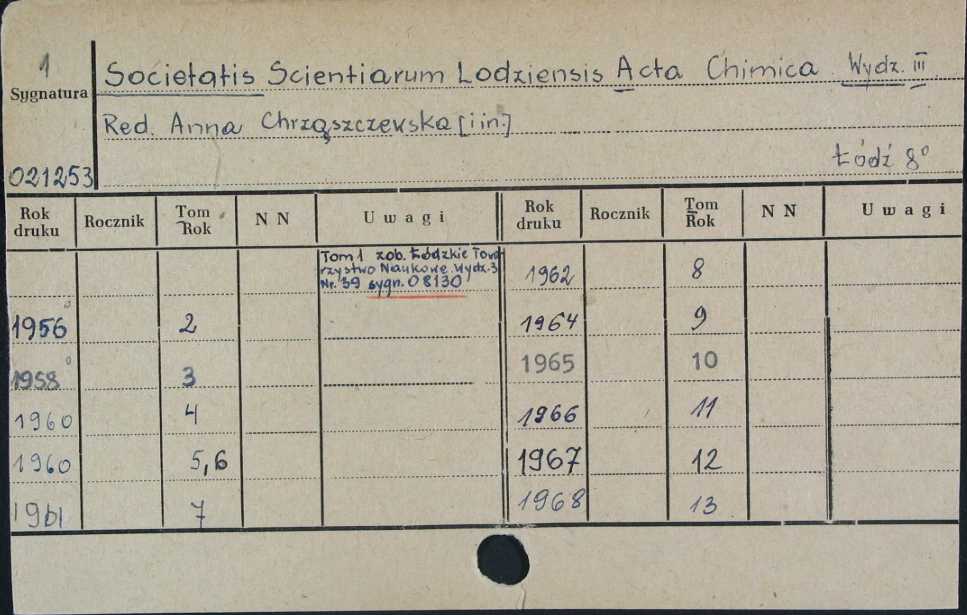 1
Sygnatura
021253
Societatis Scientiarum Lodziensis Acta Chimica Wydz. III
Red. Anna Chrząszczewska [i in.]
Łódź 8°
Rok druku Rocznik Tom Rok N N Uwagi Rok druku Rocznik Tom Rok N N Uwagi
Tom 1 zob. Łódzkie Towa
rzystwo Naukowe. Wydz. 3
Nr. 39 sygn. 08130
1962 8
1956 2 1964 9
1958 3 1965 10
1960 4 1966 11
1960 5,6 1967 12
1961 7 1968 13